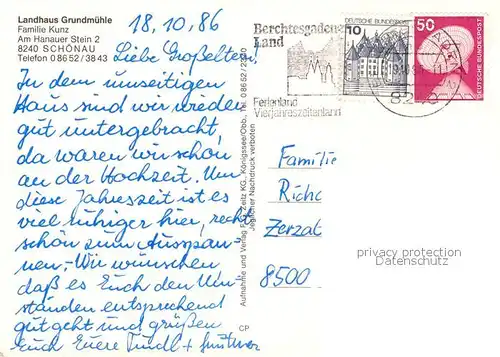 Landhaus Grundmühle
Familie Kunz
Am Hanauer Stein 2
8240 SCHÖNAU
Telefon 0 86 52 / 38 43
18.10.86
Liebe Großeltern!
In dem umseitigen
Haus sind wir wieder
gut untergebracht,
da waren wir schon
an der Hochzeit. Um
diese Jahreszeit ist es
viel ruhiger hier, recht
schön zum Ausspan-
nen. Wir wünschen
daß es Euch den Um-
ständen entsprechend
gut geht und grüßen
Euch Euere +
Aufnahme und Verlag Zeitz KG, Königssee/Obb., Tel. 0 86 52/
Jeglicher Nachdruck verboten
CP
Berchtesgadener
Land
Ferienland
Vierjahreszeitenland
10
DEUTSCHE BUNDESPOST
50
DEUTSCHE BUNDESPOST
Familie
Zerzat
8500
privacy protection
Datenschutz